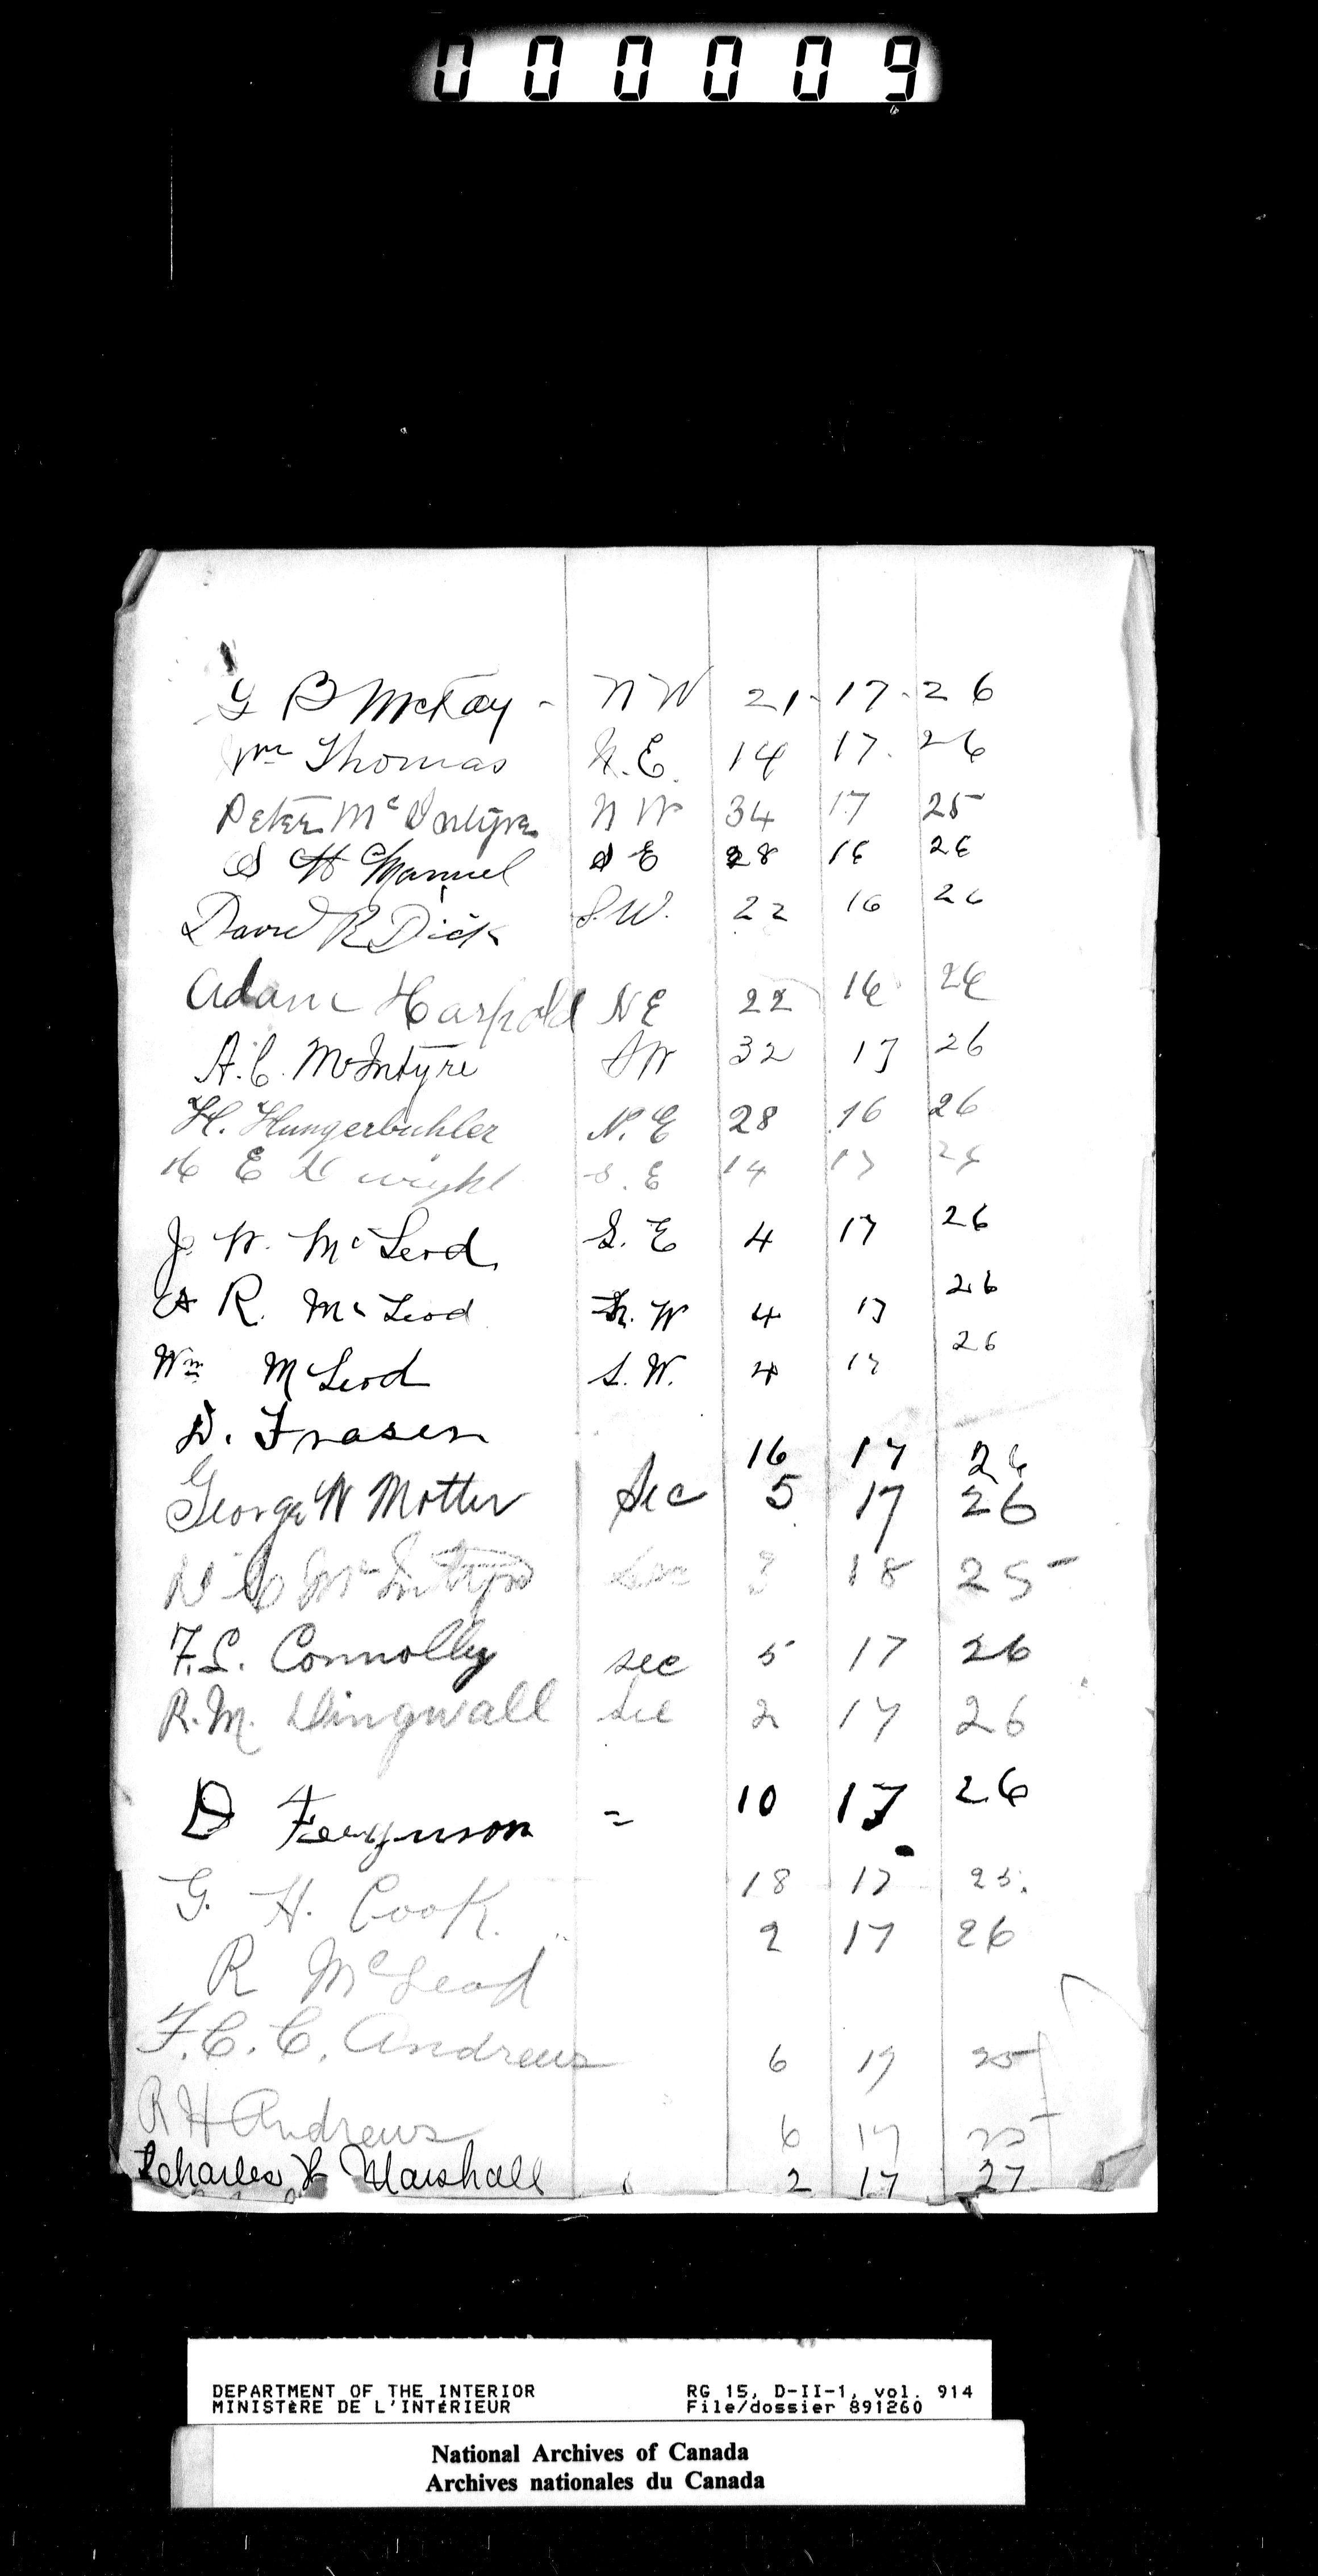 000009
G B McKay - N W 21 - 17 - 26
Wm Thomas N.E. 14 17. 26
Peter McIntyre N W 34 17 25
S H Manuel S E 28 16 26
David R Dick S.W. 22 16 26
Adam Harpold N E 22 16 26
A.C. McIntyre S W 32 17 26
H. Hungerbuhler N. E 28 16 26
E wright S. E 14 17 26
J. W. McLeod S. E 4 17 26
A R. McLeod N. W 4 17 26
Wm McLeod S. W. 4 17 26
D. Fraser 16 17 26
George W Motter Sec 5 17 26
McIntyre Sec 3 18 25
F.L. Connolly sec 5 17 26
R.M. Dingwall Sec 2 17 26
D Ferguson = 10 17 26
G. H. Cook 18 17 25.
R McLeod 2 17 26
F.C.C. Andrews 6 17 25
R H Andrews 6 17 25
Charles H Marshall 2 17 27
DEPARTMENT OF THE INTERIOR RG 15, D-II-1, vol. 914
MINISTÈRE DE L'INTÉRIEUR File/dossier 891260
National Archives of Canada
Archives nationales du Canada